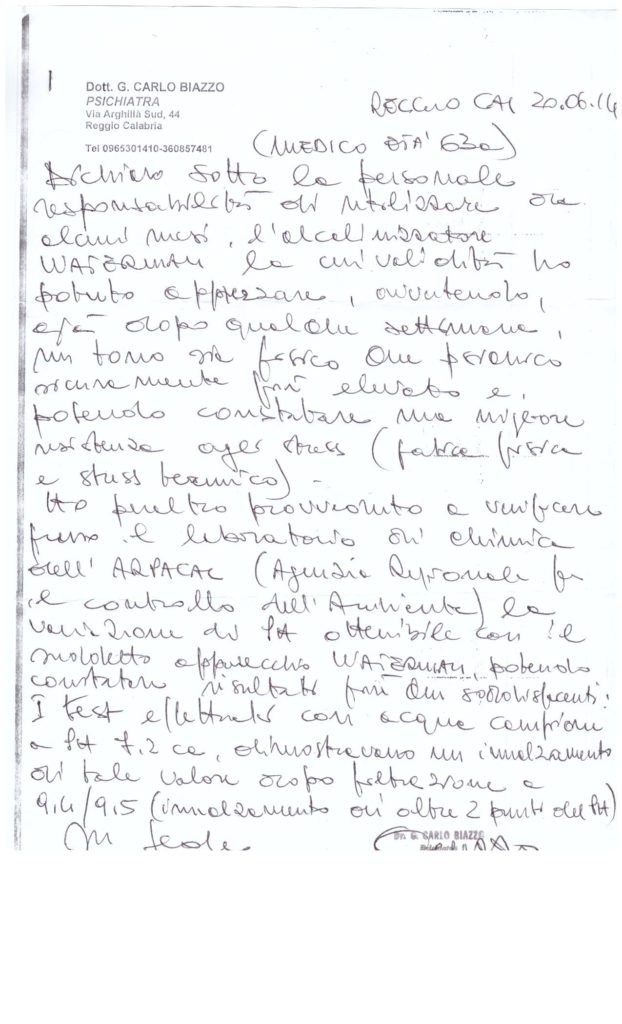 Dott. G. CARLO BIAZZO
PSICHIATRA
Via Arghillà Sud, 44
Reggio Calabria
Tel 0965301410-360857481
REGGIO CAL 20.06.14
(MEDICO ETA' 63a)
Dichiaro sotto la personale
responsabilità di utilizzare da
alcuni mesi, l'alcalinizzatore
WATERMAN la cui validità ho
potuto apprezzare, avvertendo,
già dopo qualche settimana,
un tono sia fisico che psichico
sicuramente più elevato e,
potendo constatare una migliore
resistenza agli stress (fatica fisica
e stress termico) -
Ho peraltro provveduto a verificare
presso il laboratorio di chimica
dell'ARPACAL (Agenzia Regionale per
il controllo dell'Ambiente) la
variazione di PH ottenibile con il
suddetto apparecchio WATERMAN, potendo
constatare risultati più che soddisfacenti:
I test effettuati con acqua campione
a PH 7.2 ca, dimostravano un innalzamento
di tale valore dopo filtrazione a
9.4/9.5 (innalzamento di oltre 2 punti del PH)
In fede
Dr. G. CARLO BIAZZO